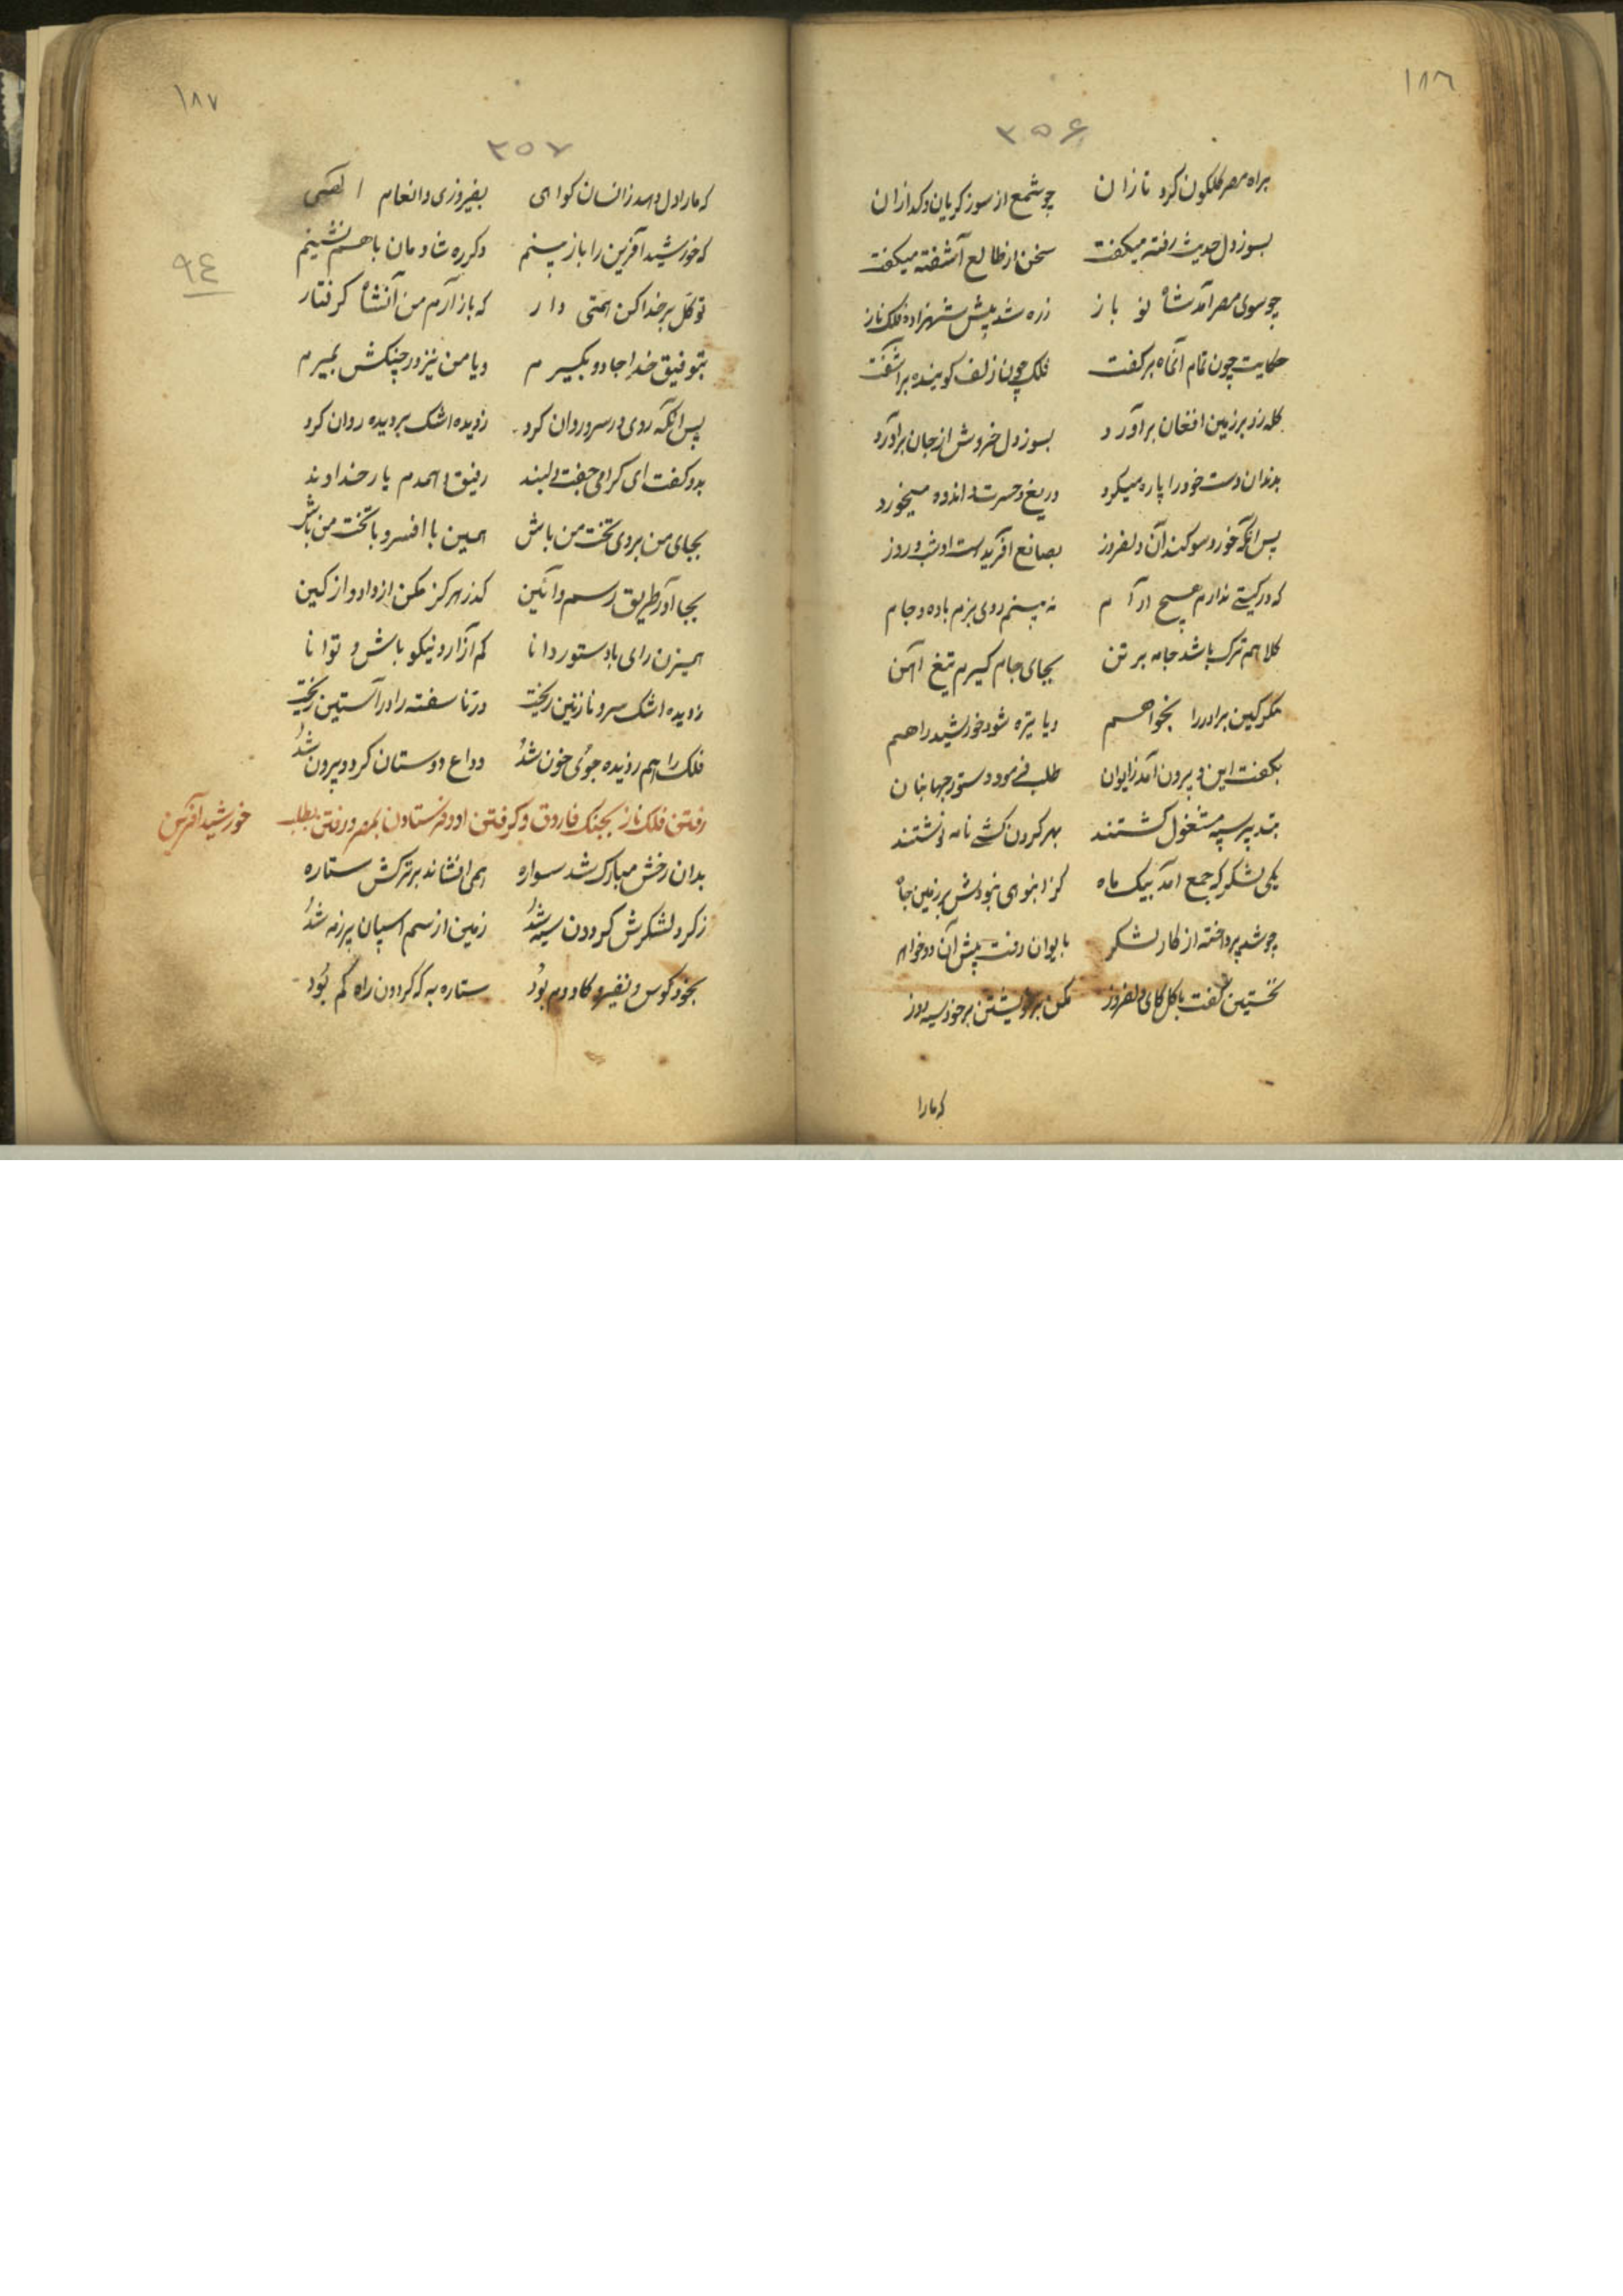 ١٨٦
٣٥۶
براه مصر گلگون کرد تازان چو شمع از سوز گریان و گدازان
بسوز دل حدیث رفته میگفت سخن از طالع آشفته میگفت
چو سوی مصر آمد شاه نو باز زره شد پیش شهزاده فلک ناز
حکایت چون تمام آنماه برگفت فلک چون زلف گوینده براشفت
کله زد بر زمین افغان برآورد بسوز دل خروش از جان برآورد
بدندان دست خود را پاره میکرد دریغ و حسرت و اندوه میخورد
پس آنگه خورد سوگند آن دلفروز بصانع آفریدست او شب و روز
که در گیتی ندارم هیچ آرام نه بینم روی بزم باده و جام
کلاهم ترک باشد جامه بر تن بجای جام گیرم تیغ آهن
مگر کین برادر را بخواهم ویا تیره شود خورشید را هم
بگفت این و برون آمد ز ایوان طلب فرمود دستور جهانبان
بتدبیر سپه مشغول گشتند بهر گردن کشی نامه نوشتند
یکی لشکر که جمع آمد بیک ماه کز انبوهی نبودش بر زمین جاه
چو شد پرداخته از کار لشکر بایوان رفت پیش آن دو خواهر
نخستین گفت با گل کای دلفروز مکن بر خویشتن بر خود سیه روز
که مارا
١٨٧
٣٥٧
که مارا دل دهد زانسان گواهی بفیروزی و انعام الهی
که خورشید آفرین را باز بینم دگر ره شادمان باهم نشینم
توکل بر خدا کن همتی دار که باز آرم من آنشاه گرفتار
بتوفیق خدا جادو بگیرم ویا من نیز در چنگش بمیرم
پس آنگه روی در سرو روان کرد ز دیده اشک بر دیده روان کرد
بدو گفت ای گرامی جفت دلبند رفیق و همدم یار خداوند
بجای من بروی تخت من باش همین با افسر و با تخت من باش
بجا آور طریق رسم و آئین گذر هرگز مکن از داد و از کین
همیزن رای با دستور دانا کم آزار و نیکو باش و توانا
ز دیده اشک سرو نازنین ریخت در ناسفته را در آستین ریخت
فلک را هم ز دیده جوی خون شد وداع دوستان کرد و برون شد
رفتن فلک ناز بجنگ فاروق و گرفتن او و فرستادن بمصر و رفتن بطلب خورشید آفرین
٩٤
بدان رخش مبارک شد سواره همی افشاند بر ترکش ستاره
ز گرد لشکرش گردون سیه شد زمین از سم اسپان پر زمه شد
بخود کوس و نفیر و گاودم بود ستاره به که گردون راه گم بود